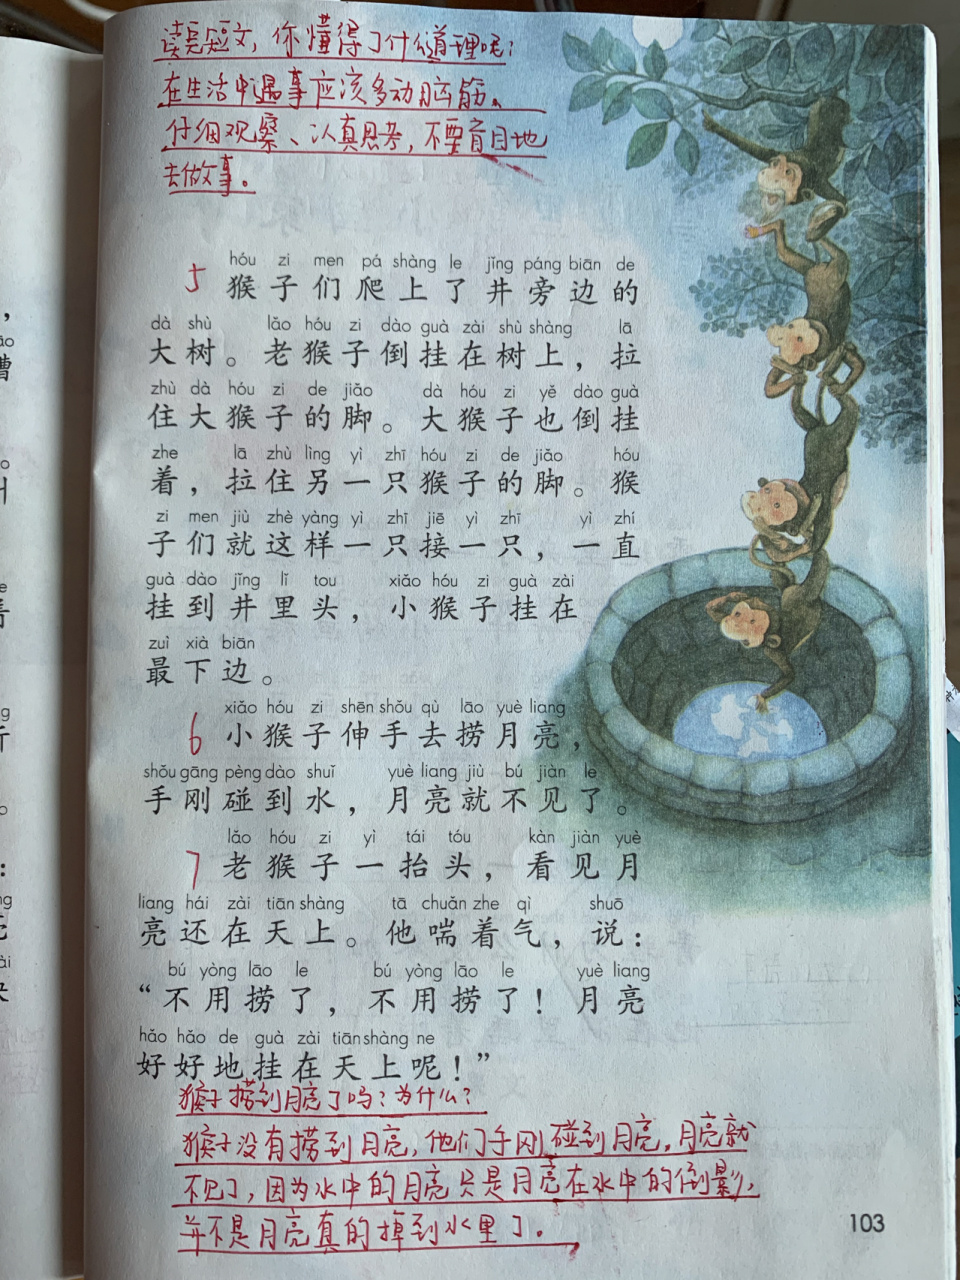 读完短文，你懂得了什么道理呢？
在生活中遇事应该多动脑筋。
仔细观察、认真思考，不要盲目地
去做事。
hóu zi men pá shàng le jǐng páng biān de
5 猴子们爬上了井旁边的
dà shù lǎo hóu zi dào guà zài shù shàng lā
大树。老猴子倒挂在树上，拉
zhù dà hóu zi de jiǎo dà hóu zi yě dào guà
住大猴子的脚。大猴子也倒挂
zhe lā zhù lìng yì zhī hóu zi de jiǎo hóu
着，拉住另一只猴子的脚。猴
zi men jiù zhè yàng yì zhī jiē yì zhī yì zhí
子们就这样一只接一只，一直
guà dào jǐng lǐ tou xiǎo hóu zi guà zài
挂到井里头，小猴子挂在
zuì xià biān
最下边。
xiǎo hóu zi shēn shǒu qù lāo yuè liang
6 小猴子伸手去捞月亮，
shǒu gāng pèng dào shuǐ yuè liang jiù bú jiàn le
手刚碰到水，月亮就不见了。
lǎo hóu zi yì tái tóu kàn jiàn yuè
7 老猴子一抬头，看见月
liang hái zài tiān shàng tā chuǎn zhe qì shuō
亮还在天上。他喘着气，说：
bú yòng lāo le bú yòng lāo le yuè liang
“不用捞了，不用捞了！月亮
hǎo hǎo de guà zài tiān shàng ne
好好地挂在天上呢！”
猴子捞到月亮了吗？为什么？
猴子没有捞到月亮，他们手刚碰到月亮，月亮就
不见了，因为水中的月亮只是月亮在水中的倒影，
并不是月亮真的掉到水里了。
103